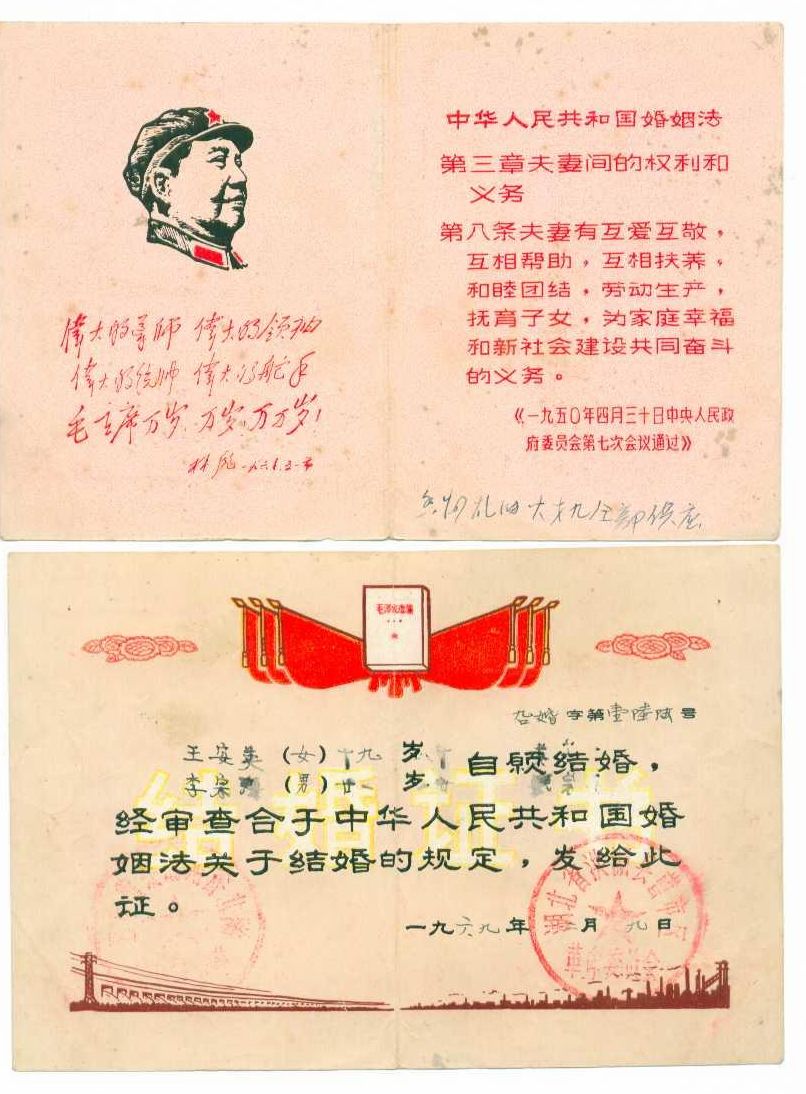 伟大的导师 伟大的领袖
伟大的统帅 伟大的舵手
毛主席万岁、万岁、万万岁！
林彪
中华人民共和国婚姻法
第三章夫妻间的权利和
义务
第八条夫妻有互爱互敬，
互相帮助，互相扶养，
和睦团结，劳动生产，
抚育子女，为家庭幸福
和新社会建设共同奋斗
的义务。
《一九五〇年四月三十日中央人民政
府委员会第七次会议通过》
毛泽东选集
婚 字第壹陆 号
王安英 (女) 十九 岁
李宗 (男) 廿 岁
自愿结婚，
结婚证书
经审查合于中华人民共和国婚
姻法关于结婚的规定，发给此
证。
一九六九年 月 九日
湖北省
革命委员会